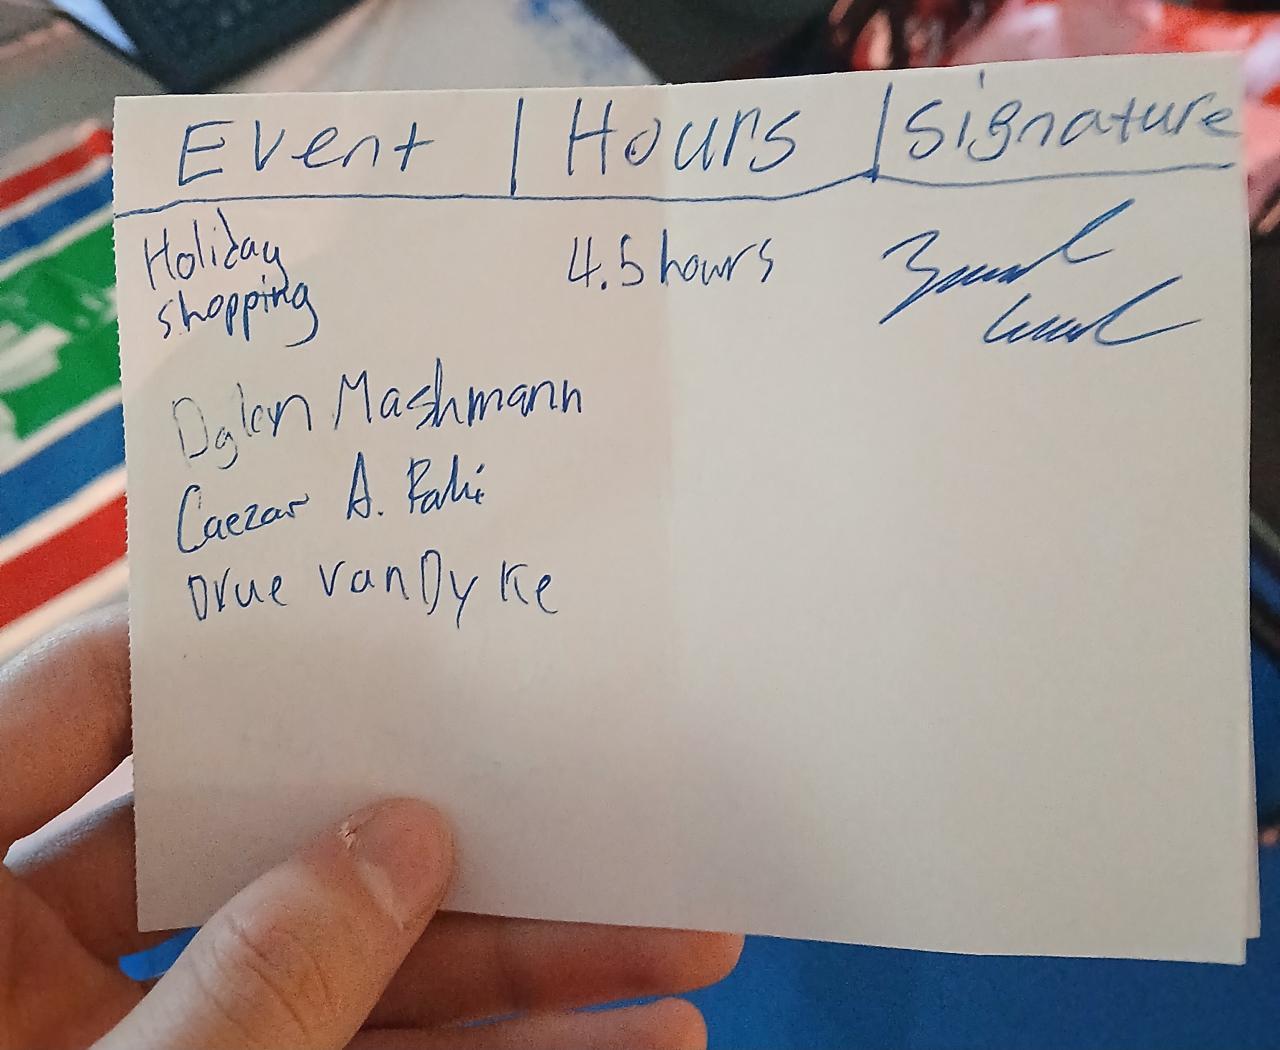 Event | Hours | Signature
Holiday 4.5 hours
shopping
Mashmann
Caezar A.
Drue VanDyke